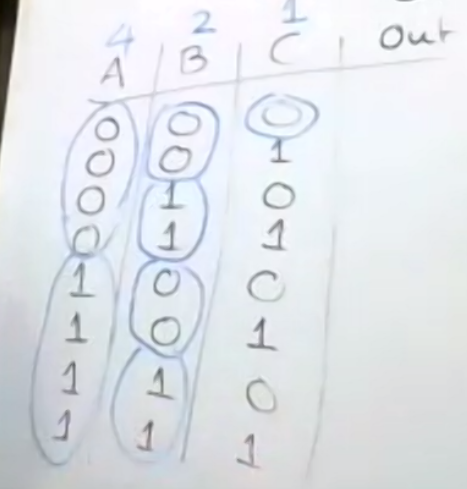 4 2 1
A B C Out
0 0 0
0 0 1
0 1 0
0 1 1
1 0 0
1 0 1
1 1 0
1 1 1